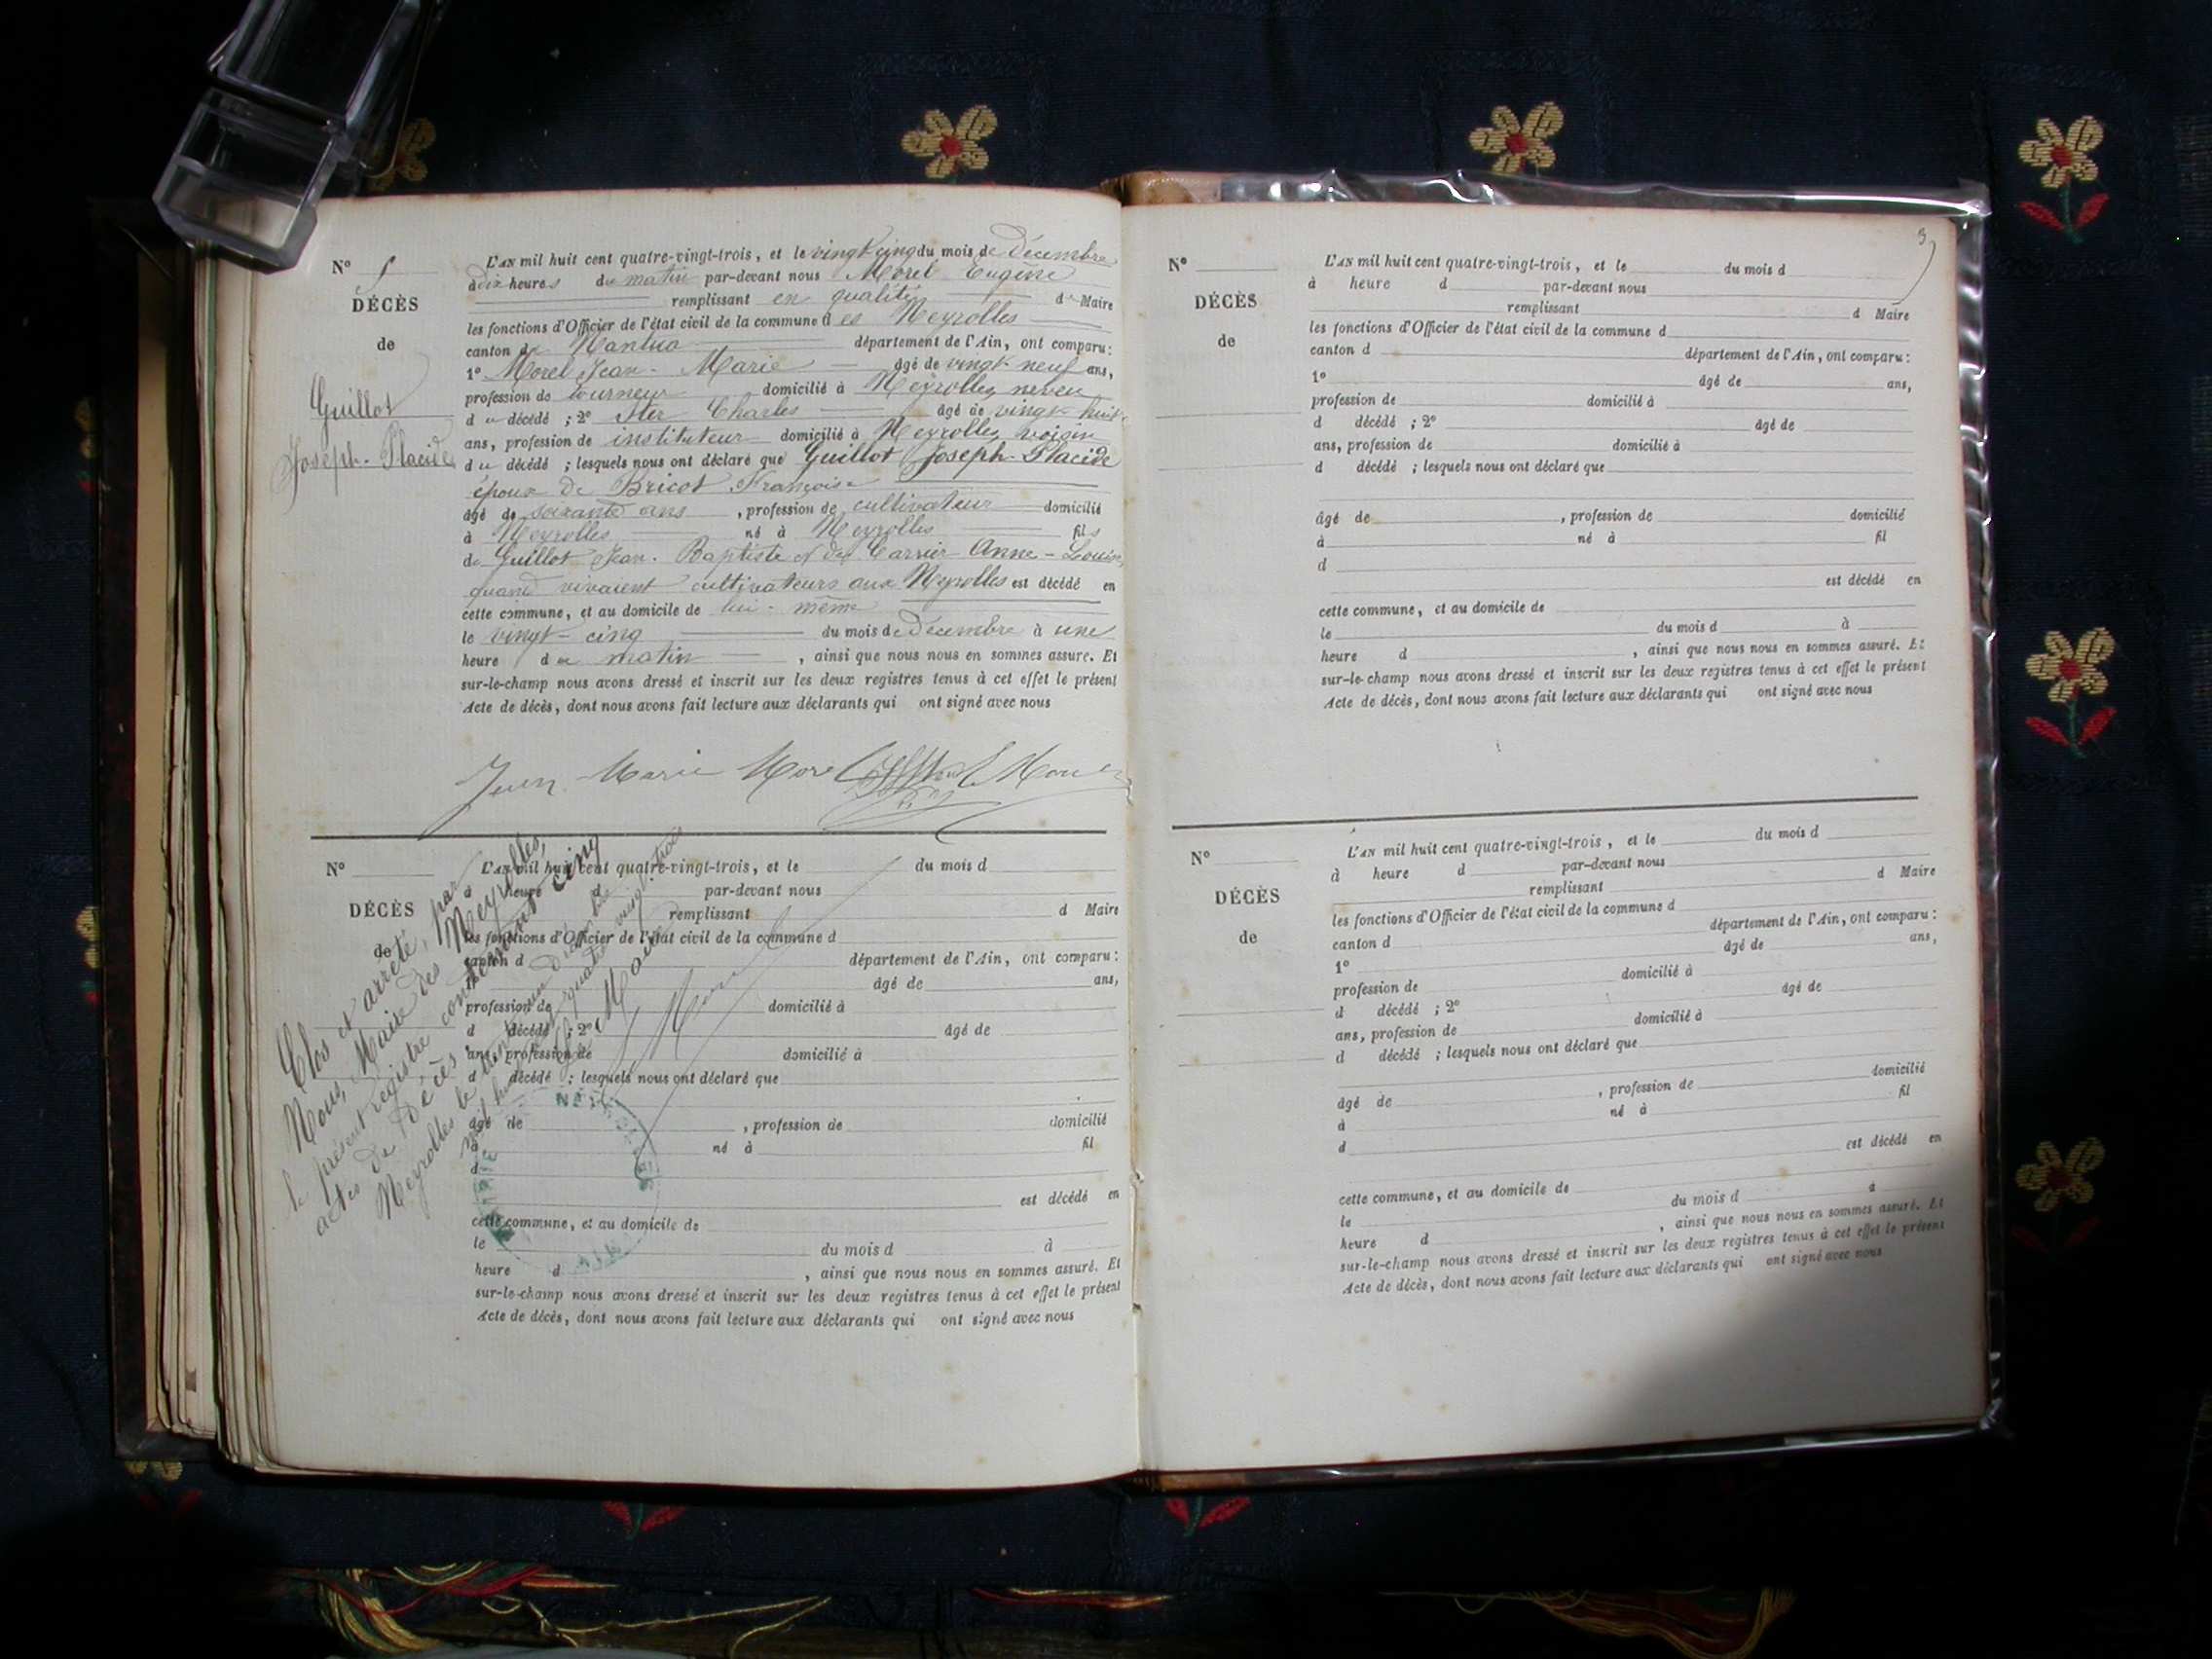 N° 5
DÉCÈS
de
Guillot
Joseph-Placide
L'AN mil huit cent quatre-vingt-trois, et le vingt cinq du mois de Décembre
à dix heures du matin par-devant nous Morel Eugène
remplissant en qualité de Maire
les fonctions d'Officier de l'état civil de la commune des Neyrolles
canton de Nantua département de l'Ain, ont comparu:
1° Morel Jean-Marie âgé de vingt-neuf ans,
profession de tourneur domicilié à Neyrolles neveu
du décédé ; 2° Charles âgé de vingt-huit
ans, profession de instituteur domicilié à Neyrolles, voisin
du décédé ; lesquels nous ont déclaré que Guillot Joseph-Placide
époux de Bricot Françoise
âgé de soixante ans, profession de cultivateur domicilié
à Neyrolles né à Neyrolles fils
de Guillot Jean-Baptiste et de Carrier Anne-Louise
quand vivaient cultivateurs aux Neyrolles est décédé en
cette commune, et au domicile de lui-même
le vingt-cinq du mois de Décembre à une
heure du matin, ainsi que nous nous en sommes assuré. Et
sur-le-champ nous avons dressé et inscrit sur les deux registres tenus à cet effet le présent
Acte de décès, dont nous avons fait lecture aux déclarants qui ont signé avec nous
Jean Marie Morel
N°
DÉCÈS
de
L'AN mil huit cent quatre-vingt-trois, et le du mois d
à heure d par-devant nous
remplissant d Maire
les fonctions d'Officier de l'état civil de la commune d
canton d département de l'Ain, ont comparu:
âgé de ans,
profession de domicilié à
d décédé ; 2° âgé de
ans, profession de domicilié à
d décédé ; lesquels nous ont déclaré que
âgé de , profession de domicilié
à né à fil
d
est décédé en
cette commune, et au domicile de
le du mois d à
heure d , ainsi que nous nous en sommes assuré. Et
sur-le-champ nous avons dressé et inscrit sur les deux registres tenus à cet effet le présent
Acte de décès, dont nous avons fait lecture aux déclarants qui ont signé avec nous
Clos et arrêté, par
Nous, Maire des Neyrolles,
le présent registre contenant cinq
actes de Décès
Neyrolles le trente un Décembre
mil huit cent quatre vingt trois
Le Maire
Morel
MAIRIE NEYROLLES
AIN
3
N°
DÉCÈS
de
L'AN mil huit cent quatre-vingt-trois, et le du mois d
à heure d par-devant nous
remplissant d Maire
les fonctions d'Officier de l'état civil de la commune d
canton d département de l'Ain, ont comparu:
1° âgé de ans,
profession de domicilié à
d décédé ; 2° âgé de
ans, profession de domicilié à
d décédé ; lesquels nous ont déclaré que
âgé de , profession de domicilié
à né à fil
d
est décédé en
cette commune, et au domicile de
le du mois d à
heure d , ainsi que nous nous en sommes assuré. Et
sur-le-champ nous avons dressé et inscrit sur les deux registres tenus à cet effet le présent
Acte de décès, dont nous avons fait lecture aux déclarants qui ont signé avec nous
N°
DÉCÈS
de
L'AN mil huit cent quatre-vingt-trois, et le du mois d
à heure d par-devant nous
remplissant d Maire
les fonctions d'Officier de l'état civil de la commune d
canton d département de l'Ain, ont comparu:
1° âgé de ans,
profession de domicilié à
d décédé ; 2° âgé de
ans, profession de domicilié à
d décédé ; lesquels nous ont déclaré que
âgé de , profession de domicilié
à né à fil
d
est décédé en
cette commune, et au domicile de
le du mois d à
heure d , ainsi que nous nous en sommes assuré. Et
sur-le-champ nous avons dressé et inscrit sur les deux registres tenus à cet effet le présent
Acte de décès, dont nous avons fait lecture aux déclarants qui ont signé avec nous